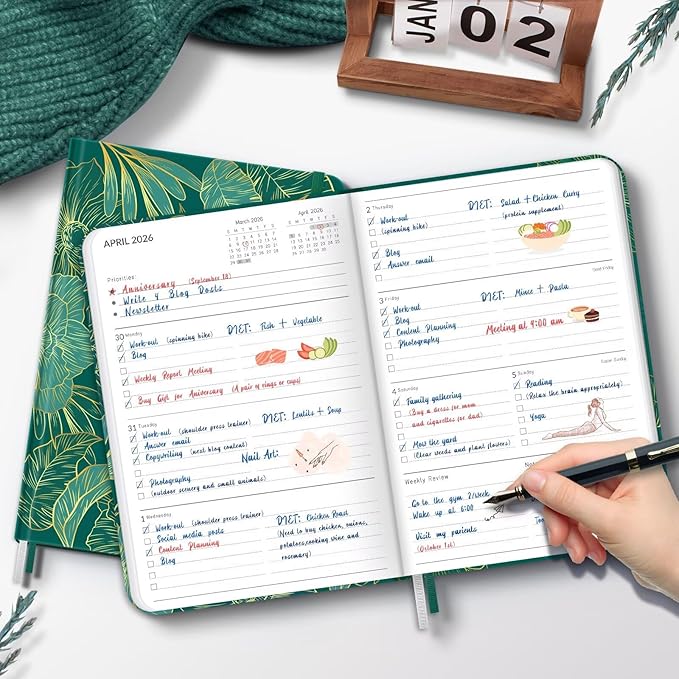 JAN 02
APRIL 2026
March 2026
April 2026
Priorities:
★ Anniversary (September 18)
• Write 4 Blog Posts
• Newsletter
30 Monday
Work-out (spinning bike)
DIET: Fish + Vegetable
Blog
Weekly Report Meeting
Buy Gift for Aniversary (A pair of rings or cups)
31 Tuesday
Work-out (shoulder press trainer)
DIET: Lentils + Soup
Answer email
Copywriting (next blog content)
Nail Art:
Photography
(outdoor scenery and small animals)
1 Wednesday
Work-out (shoulder press trainer)
DIET: Chicken Roast
Social media posts
(Need to buy chicken, onions,
Content Planning
potatoes,cooking wine and
Blog
rosemary)
2 Thursday
Work-out
DIET: Salad + Chicken Curry
(spinning bike)
(protein supplement)
Blog
Answer email
Good Friday
3 Friday
Work-out
DIET: Mince + Pasta
Blog
Content Planning
Meeting at 9:00 am
Photography
4 Saturday
Family gathering
(Buy a dress for mom
and cigarettes for dad)
Mow the yard
(Clear weeds and plant flowers)
Easter Sunday
5 Sunday
Reading
(Relax the brain appropriately)
Yoga
Weekly Review
Go to the gym 2/week
Wake up at 6:00
Visit my parients
(October 1st)